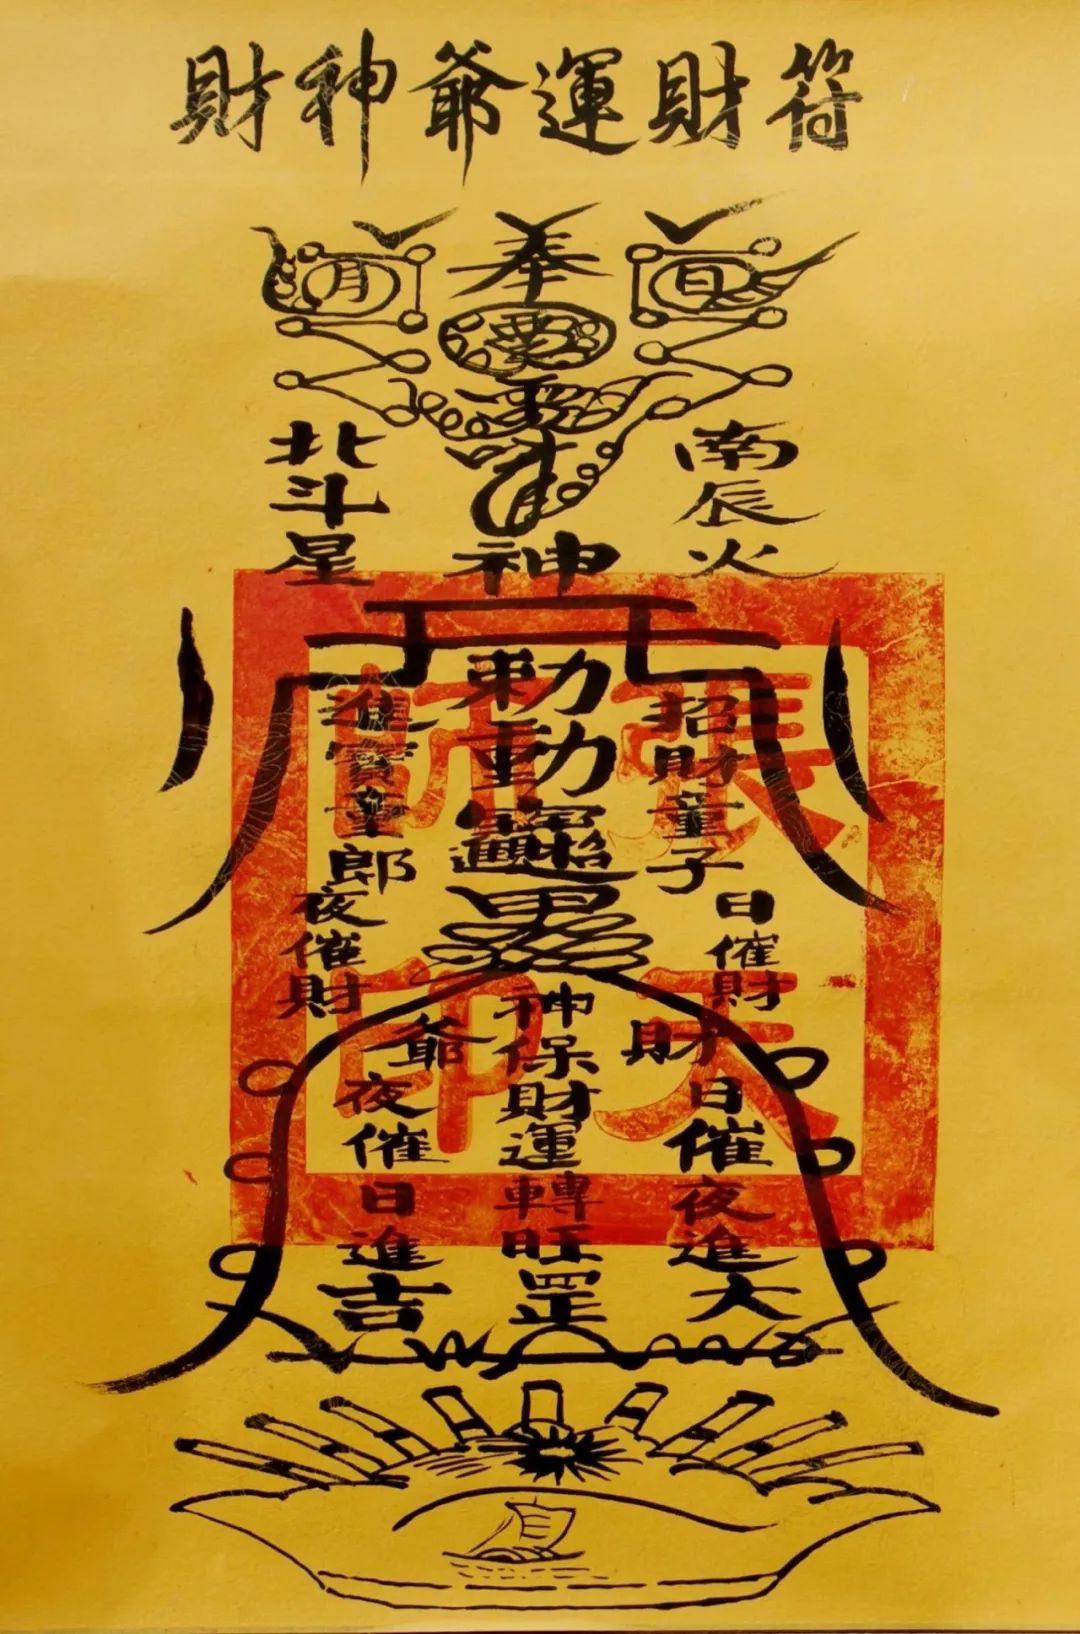 財神爺運財符
南辰火
奉
神
北斗星
招財童子
日催財
勅動
進寶童郎
夜催財
財日催夜進大
神保財運轉旺罡
爺夜催日進吉
張天師印